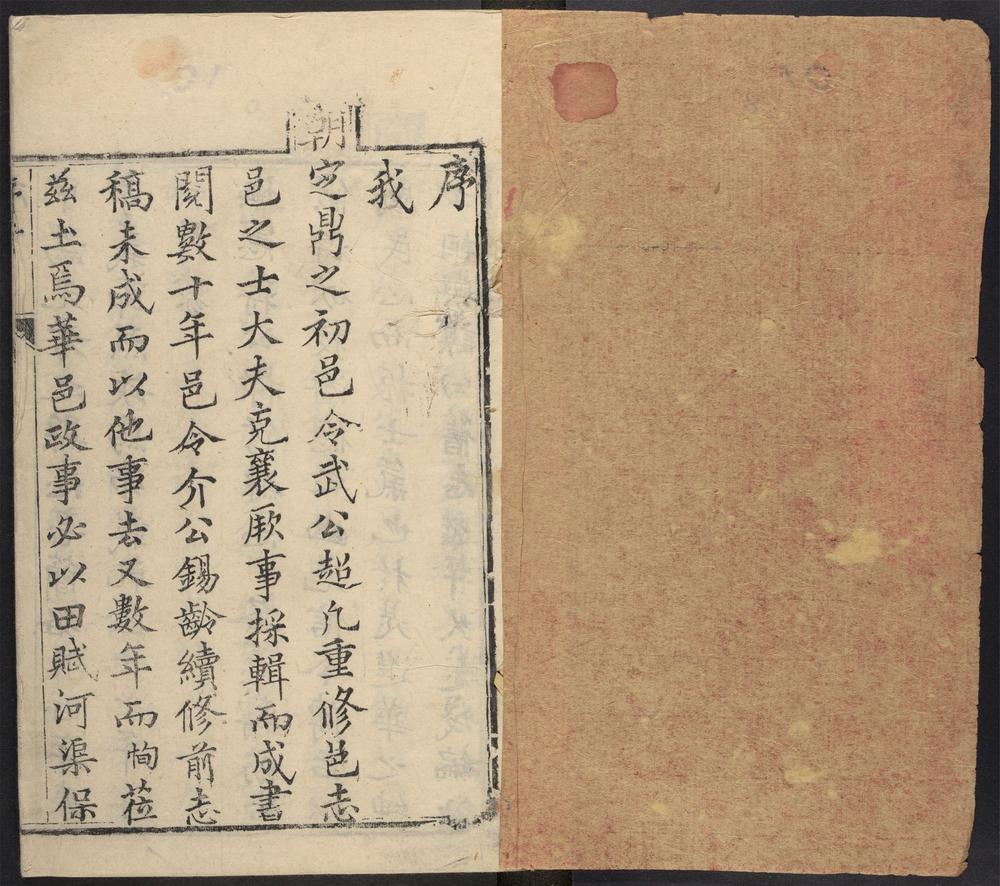 序
我
朝定鼎之初邑令武公超凡重修邑志
邑之士大夫克襄厥事採輯而成書
閱數十年邑令介公錫齡續修前志
稿未成而以他事去又數年而恂蒞
兹土焉華邑政事必以田賦河渠保